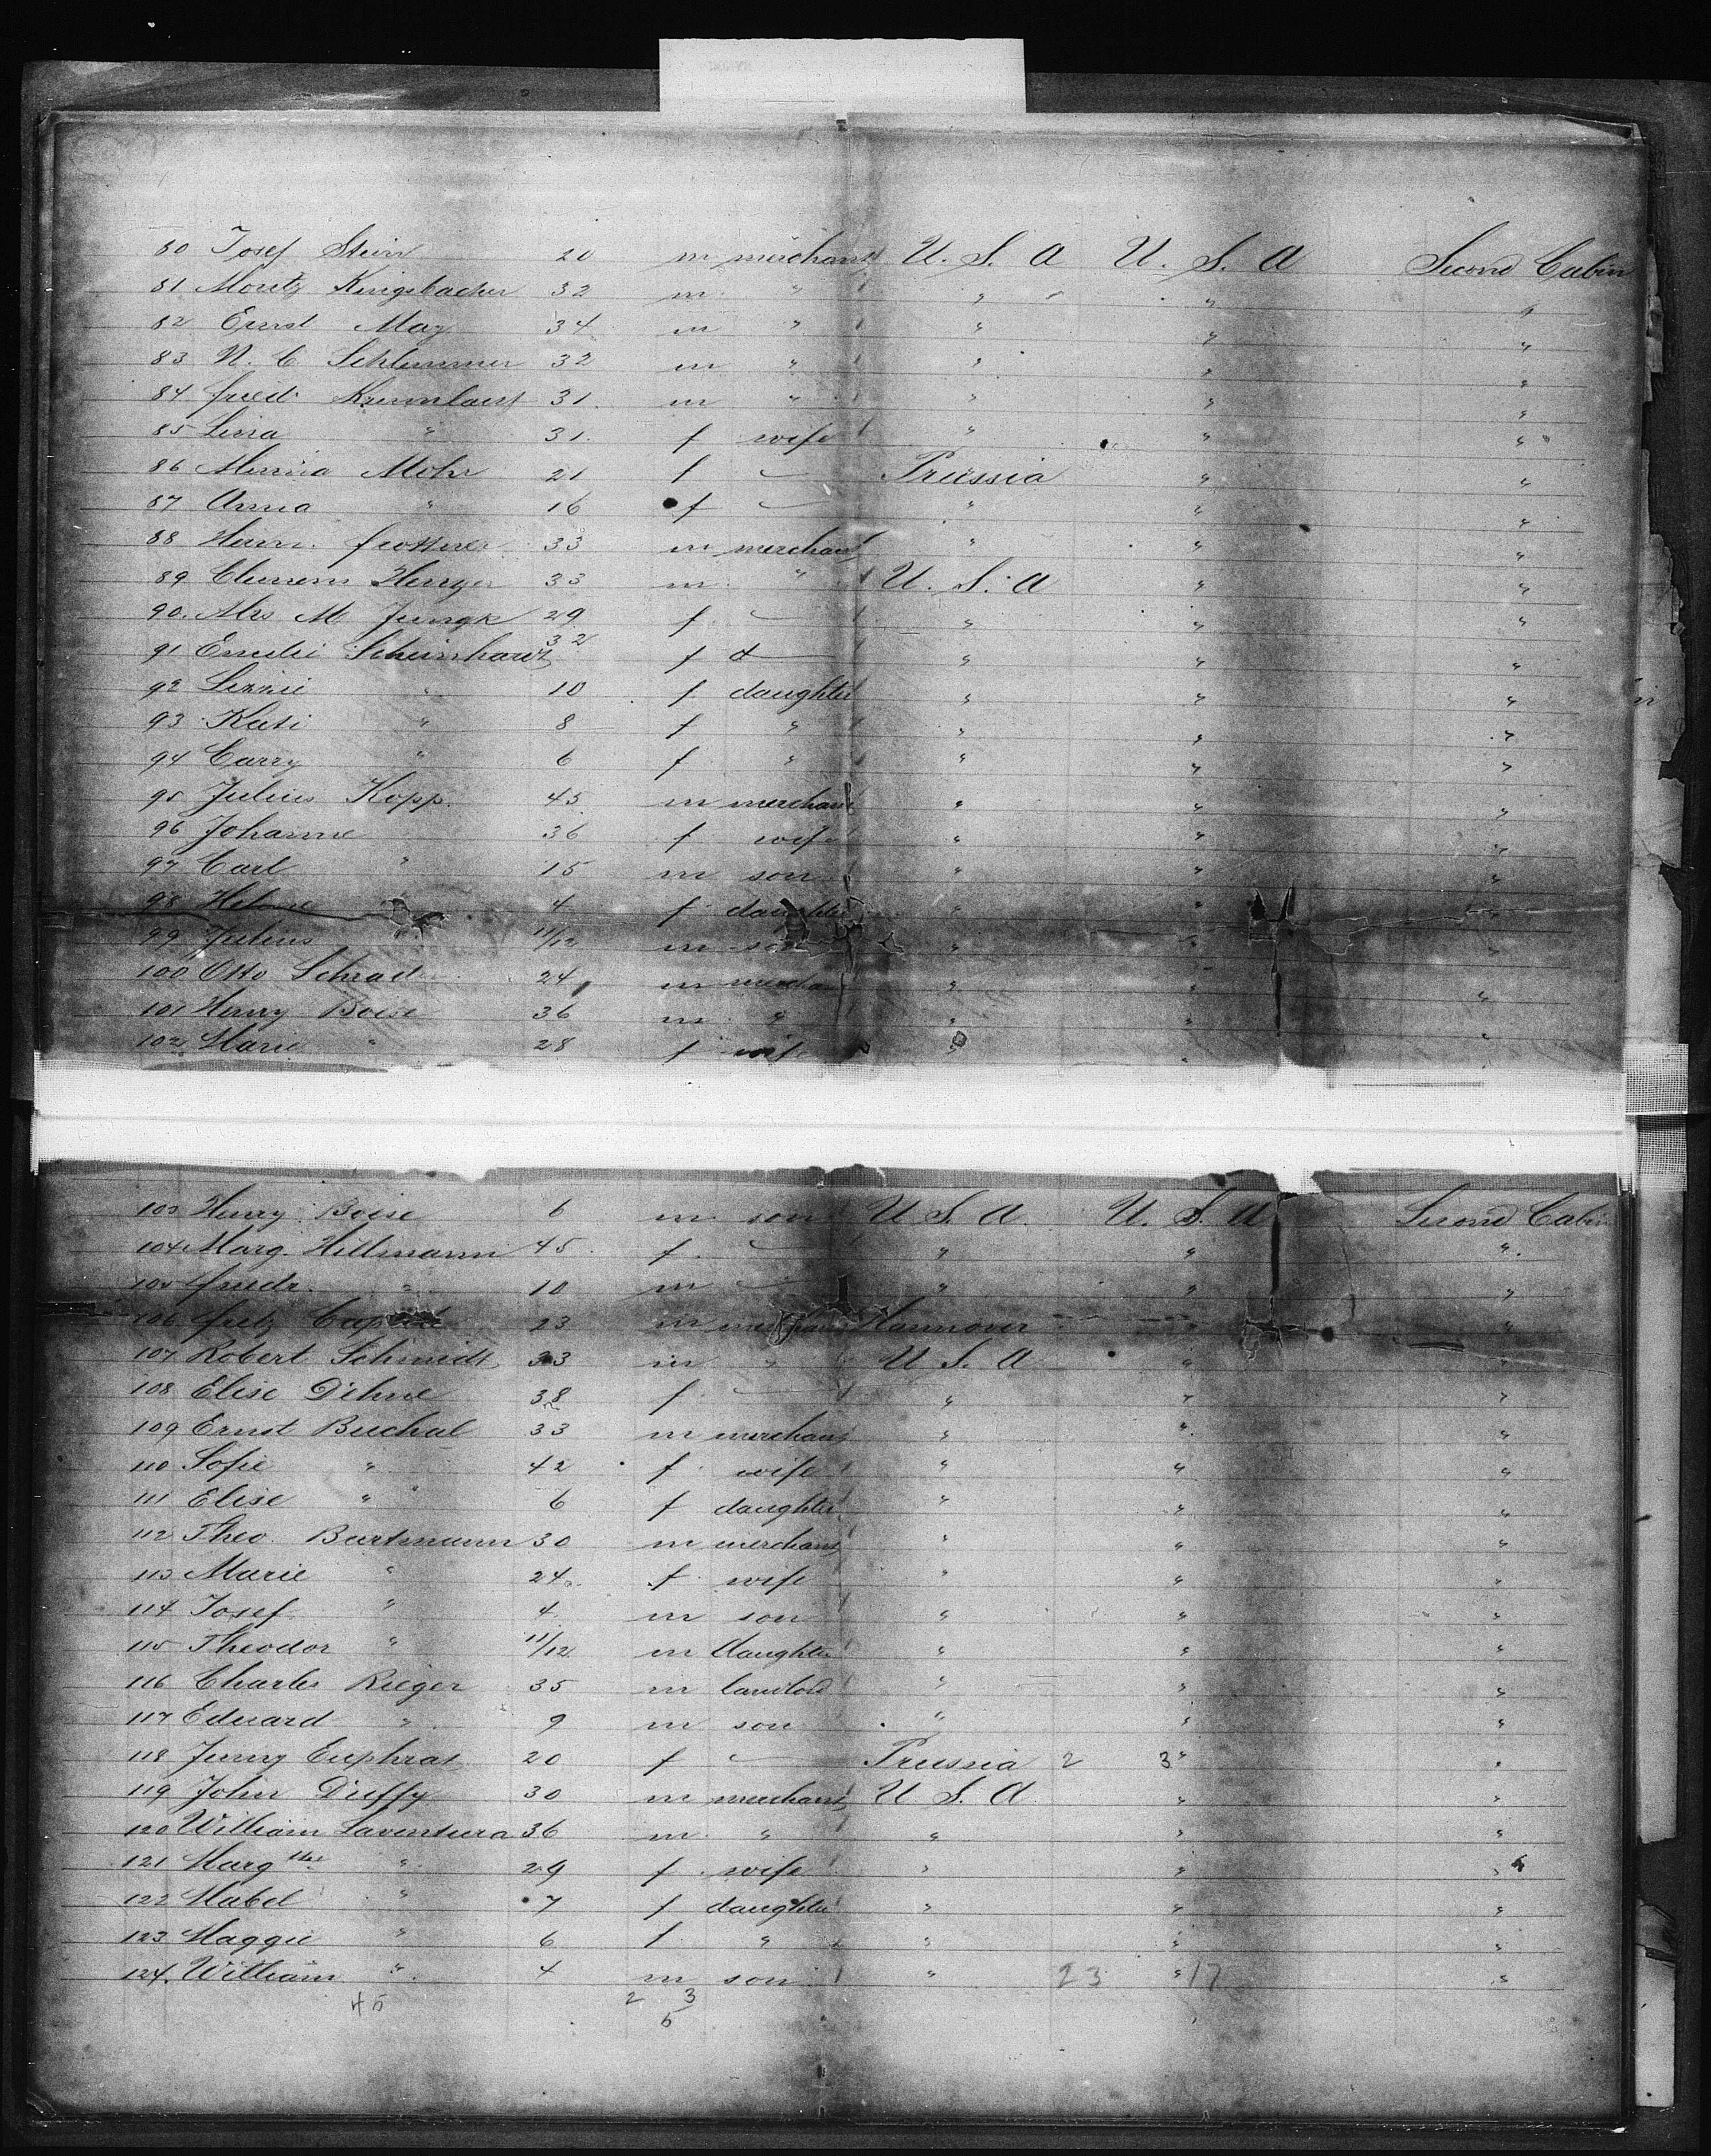 80 Josef Stein 20 m merchant U. S. A U. S. A Second Cabin
81 Moritz Kingsbacher 32 m " " " "
82 Ernst May 34 m " " " "
83 N. C Schlemmer 32 m " " " "
84 fried. 31. m " " " "
85 Lina " 31. f wife " " "
86 Minna Mohr 21 f — Prussia " "
87 Anna " 16 f — " " "
88 Herm. 33 m merchant " " "
89 Clemens 33 m " U. S. A " "
90. Mrs M. Jungk 29 f. — " " "
91 Emilie Scheinhardt 32 f — " " "
92 Lizzie " 10 f daughter " " "
93 Kati " 8 f " " " "
94 Carry " 6 f " " " "
95 Julius Kopp. 45 m merchant " " "
96 Johanne 36 f wife " " "
97 Carl " 15 m son " " "
98 Helene " 4 f daughter " " "
99 Julius " 11/12 m son " " "
100 Otto Schrader 24 m merchant " " "
101 Henry Boese 36 m " " " "
102 Marie " 28 f wife " " "
103 Henry Boese 6 m son U S. A. U. S. A Second Cabin
104 Marg. Hillmann 45. f. — " " "
105 friedr. " 10 m — " " "
106 fritz 23 m merchant Hannover " "
107 Robert Schmidt 33 m " U S. A " "
108 Elise Dehne 38 f. — " " "
109 Ernst Buchal 33 m merchant " " "
110 Sofie " 42 f wife " " "
111 Elise " 6 f daughter " " "
112 Theo. Bartmann 30 m merchant " " "
113 Marie " 24 f wife " " "
114 Josef " 4 m son " " "
115 Theodor " 11/12 m daughter " " "
116 Charles Rieger 35 m landlord " " "
117 Eduard " 9 m son " " "
118 Jenny Euphrat 20 f — Prussia 2 3 " "
119 John Duffy 30 m merchant U S. A. " "
120 William Laventura 36 m " " " "
121 Margthe " 29 f wife " " "
122 Mabel " 7 f daughter " " "
123 Maggie " 6 f " " " "
124. William " 4 m son " 23 " 17 "
45 2 3
6